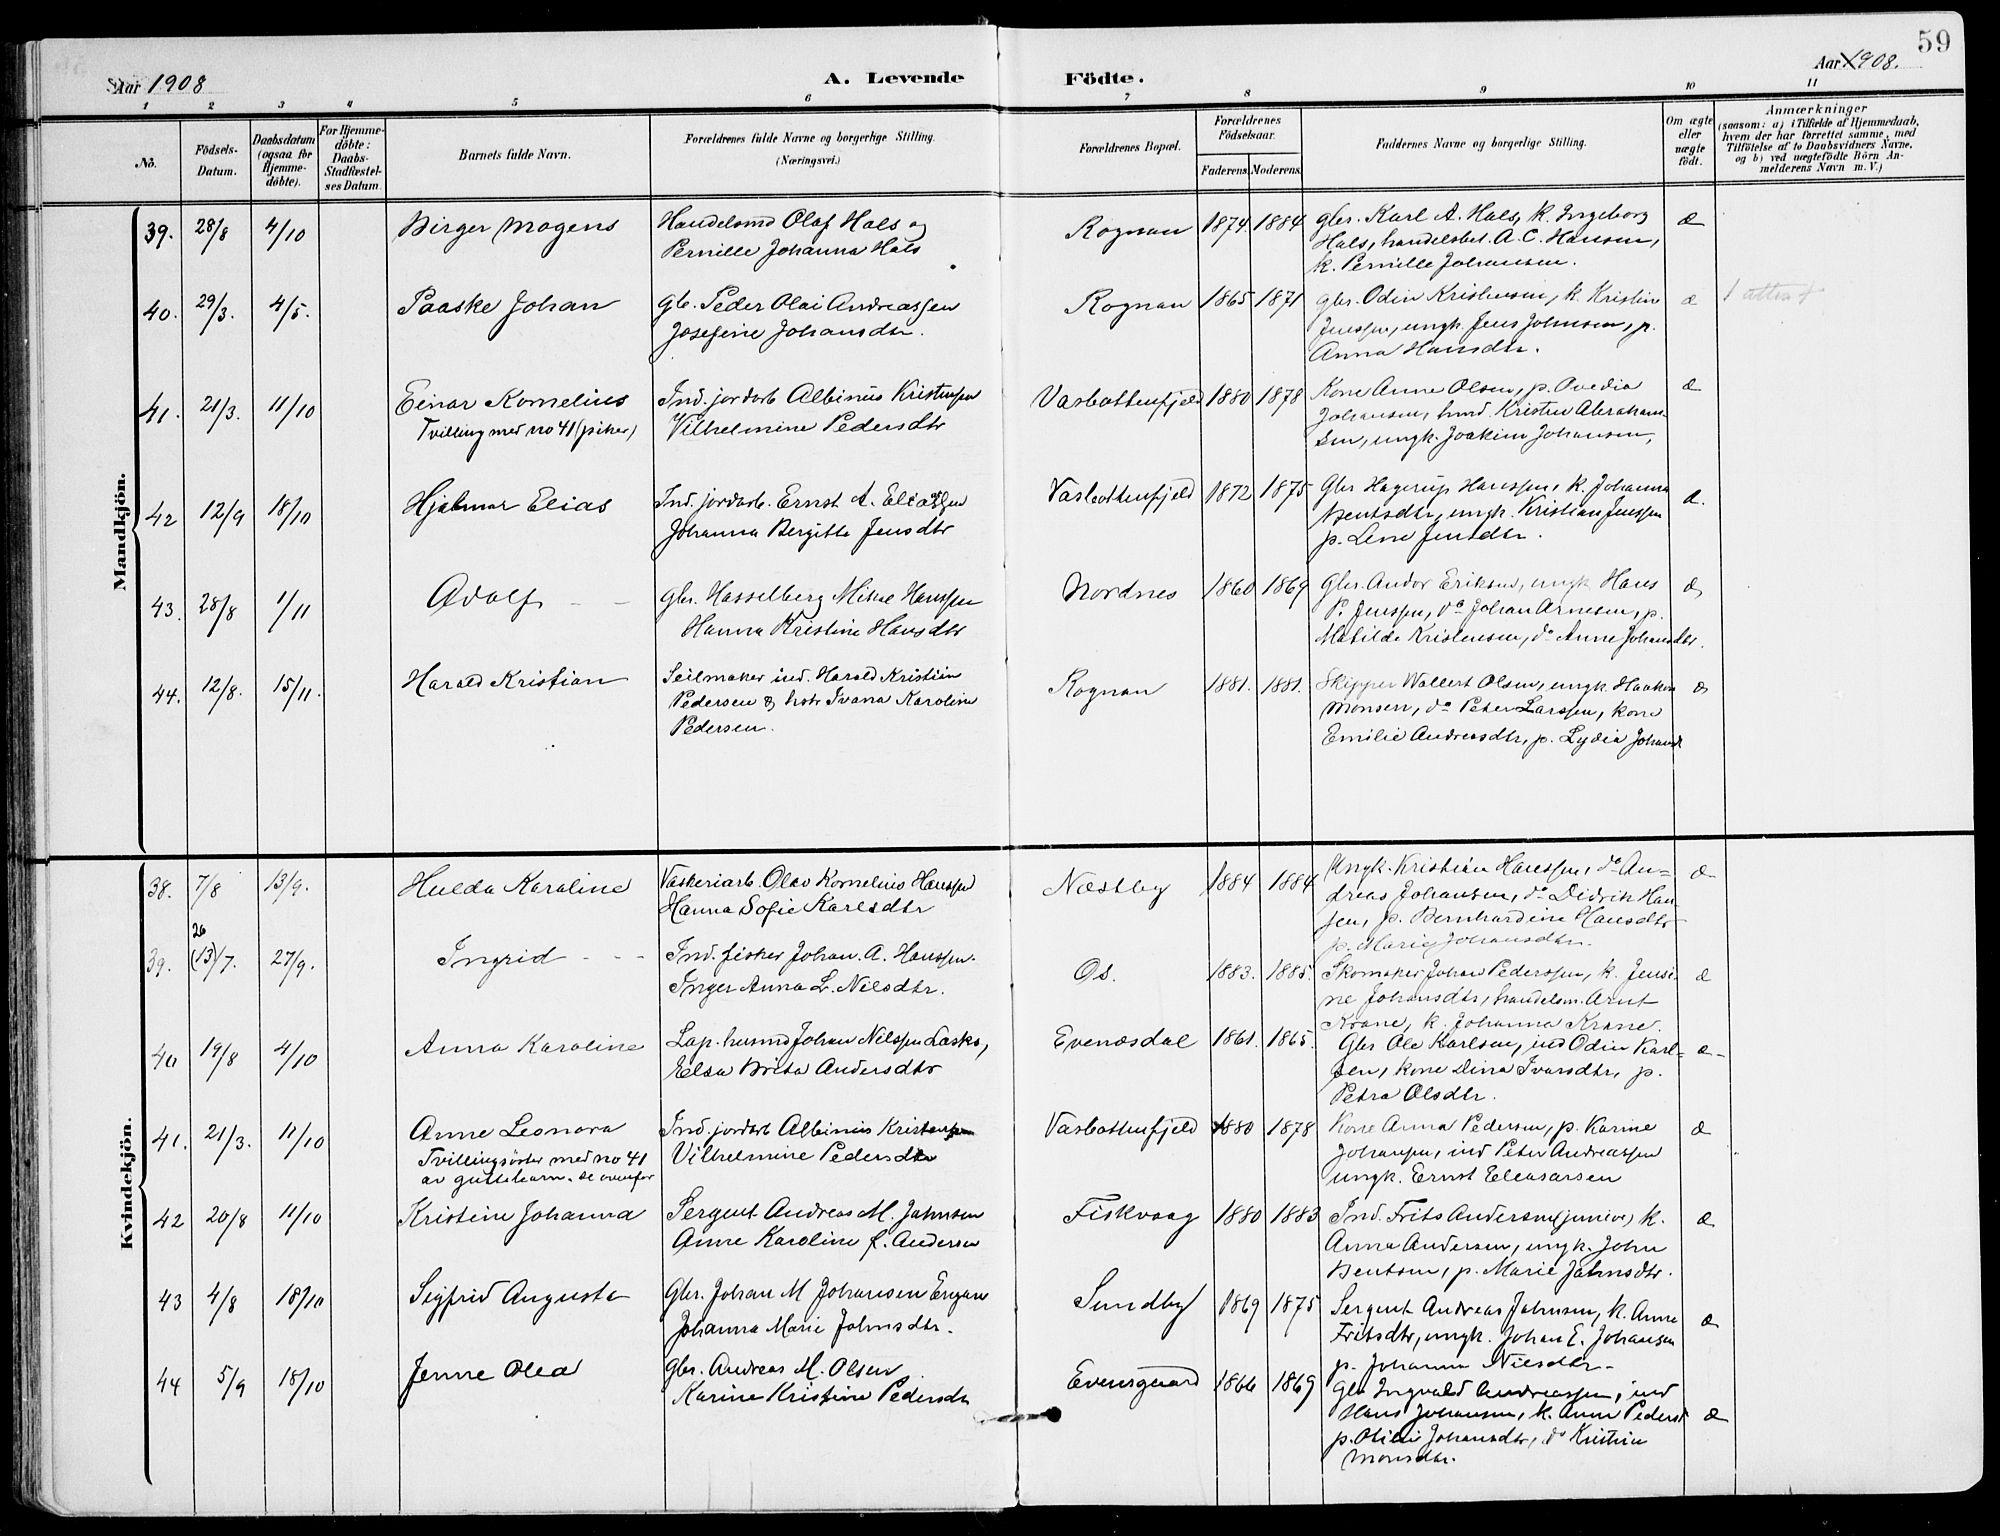 59
Aar 1908
A. Levende
Födte.
Aar 1908.
1 2 3 4 5 6 7 8 9 10 11
Nö.
Födsels-Datum.
Daabsdatum (ogsaa for Hjemmedöbte).
For Hjemmedöbte: Daabs-Stadfæstelses Datum.
Barnets fulde Navn.
Forældrenes fulde Navne og borgerlige Stilling. (Næringsvei.)
Forældrenes Bopæl.
Forældrenes Födselsaar.
Faderens. Moderens.
Faddernes Navne og borgerlige Stilling.
Om ægte eller uægte födt.
Anmærkninger
(saasom: a) i Tilfælde af Hjemmedaab, hvem der har forrettet samme, med Tilföielse af to Daabsvidners Navne, og b) ved uægtefödte Börn Anmelderens Navn m. V.)
Mandkjön.
39. 28/8 4/10 Birger Mogens
Handelsmd Olaf Hals og
Pernille Johanna Hals
Rognan 1874 1884
gbr. Karl A. Hals, k. Ingeborg
Hals, handelsbet. A. C. Hansen,
k. Pernille Johansen.
æ
40. 29/3. 4/5. Paaske Johan
gb. Peder Olai Andreassen
Josefine Johansdtr.
Rognan 1865 1871
gbr. Odin Kristensen, k. Kristine
Jenssen, ungk. Jens Johnsen, p.
Anna Hansdtr.
æ 1 attest
41. 21/3. 11/10 Einar Kornelius
Tvilling med no 41 (piker)
Ind. jordarb Albinus Kristensen
Vilhelmine Pedersdtr
Vasbottenfjeld 1880 1878
Kone Anne Olsen, p. Ovedia
Johansen, husmd. Kristen Abraham-
sen, ungk. Joakim Johansen,
æ
42 12/9 18/10 Hjalmar Elias
Ind. jordarb. Ernst A. Eliassen
Johanna Bergitte Jensdtr
Vasbottenfjeld 1872 1875
Gbr Hagerup Hanssen, k. Johanna
Bentsdtr, ungk. Kristian Jenssen
p. Lene Jensdtr.
æ.
43. 28/8 1/11 Adolf - -
gbr. Hasselberg Mikal Hanssen
Hanna Kristine Hansdtr
Nordnes 1860 1869
Gbr. Andor Eriksen, ungk Hans
P. Jenssen, do Johan Arnesen, p.
Matilde Kristensen, do Anne Johansdtr.
æ
44. 12/8. 15/11. Harald Kristian
Seilmaker ind. Harald Kristian
Pedersen & hstr Ivana Karoline
Pedersen.
Rognan 1881. 1881.
Skipper Wallert Olsen, ungk. Haakon
Monsen, do Peter Larssen, kone
Emilie Andreasdtr, p. Lydia Johansd
æ
Kvindekjön.
38. 7/8 13/9. Hulda Karoline
Væskeriarb. Olav Kornelius Hanssen
Hanna Sofie Karlsdtr
Næstby 1884 1884
Ungk. Kristian Hanssen, do An-
dreas Johansen, do Didrik Han-
sen, p. Bernhardine Hansdtr
p. Marie Johansdtr.
æ
39. 26 (13)/7. 27/9. Ingrid - - -
Ind. fisker Johan A. Hanssen.
Inger Anna L. Nilsdtr.
Os. 1883. 1885.
Skomaker Johan Pederssen, k. Jensi-
ne Johansdtr, handelsm. Arnt
Krane, k. Johanna Krane.
æ
40 19/8 4/10 Anna Karoline
Lap. husmd Johan Nilssen Lasko,
Elsa Brita Andersdtr
Evenesdal 1861. 1865.
Gbr Ole Karlsen, ind Odin Karl-
sen, kone Dina Ivarsdtr, p.
Petra Olsdtr.
æ-
41. 21/3. 11/10 Anne Leonora
Tvillingsöster med no 41
av guttebarn. se ovenfor
Ind. jordarb Albinus Kristensen
Vilhelmine Pedersdtr
Vasbottenfjeld 1880 1878
Kone Anna Pedersen, p. Karine
Johansen, ind Peter Andreassen
ungk. Ernst Eleasarsen
æ
42 20/8 11/10 Kristine Johanna
Sergent Andreas M. Jahnsen
Anne Karoline f. Andersen
Fiskvaag 1880 1883
Ind. Frits Andersen (junior) k.
Anna Andersen, ungk. John
Bentsen, p. Marie Jahnsdtr.
æ
43 4/8 18/10 Sigfrid Augusta
Gbr. Johan M Johansen Engan
Johanna Marie Jahnsdtr.
Sundby 1869 1875
Sergent Andreas Jahnsen, k. Anne
Fritsdtr, ungk. Johan E. Johansen
p. Johanna Nilsdtr.
æ
44 5/9 18/10 Jenne Olea
gbr. Andreas M. Olsen
Karine Kristine Pedersdt
Evensgaard 1866 1869
Gbr Ingvald Andreassen, ind
Hans Johansen, k. Anne Pedersd
p. Otilie Johansdtr, do Kristine
Monsdtr.
æ